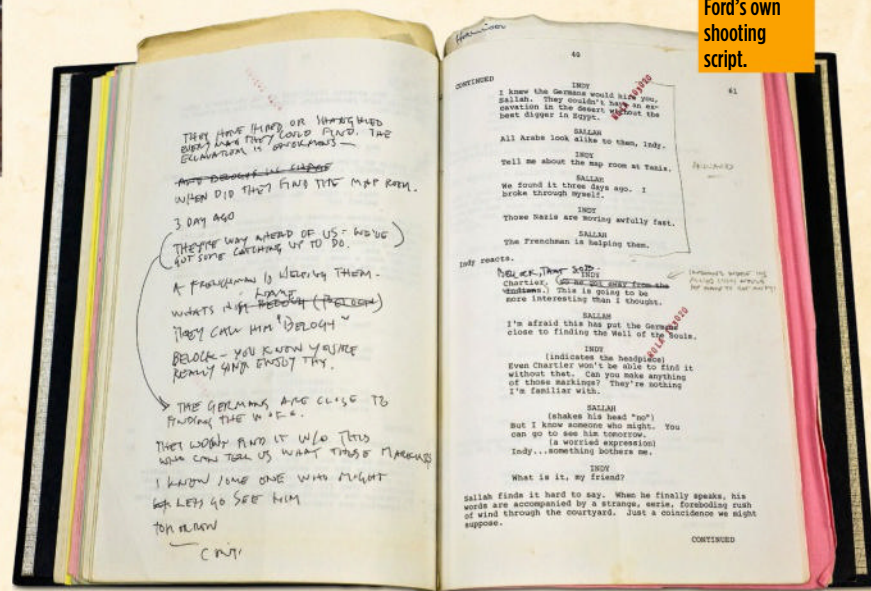 Ford's own
shooting
script.
THEY HAVE HIRED OR SHANGHIED
EVERY MAN THEY COULD FIND. THE
EXCAVATION IS ENORMOUS—
WHEN DID THEY FIND THE MAP ROOM.
3 DAY AGO
(THEY'RE WAY AHEAD OF US - WE'VE
GOT SOME CATCHING UP TO DO.)
A FRENCHMAN IS HELPING THEM.
WHATS HIS NAME
THEY CALL HIM "BELOCH"
BELOCK - YOU KNOW YOU'RE
REALLY GONNA ENJOY THIS.
THE GERMANS ARE CLOSE TO
FINDING THE W.O.F.S.
THEY WON'T FIND IT W/O THIS
WHO CAN TELL US WHAT THOSE MARKINGS
I KNOW SOME ONE WHO MIGHT
LETS GO SEE HIM
TOMORROW
Harrison
40
CONTINUED
41
INDY
I knew the Germans would hire you,
Sallah. They couldn't have an ex-
cavation in the desert without the
best digger in Egypt.
SALLAH
All Arabs look alike to them, Indy.
INDY
Tell me about the map room at Tanis.
SALLAH
We found it three days ago. I
broke through myself.
INDY
Those Nazis are moving awfully fast.
SALLAH
The Frenchman is helping them.
Indy reacts.
BELOCK, THAT S.O.B.
INDY
Chartier, (so he got away from the
Indians.) This is going to be
more interesting than I thought.
SALLAH
I'm afraid this has put the Germans
close to finding the Well of the Souls.
INDY
(indicates the headpiece)
Even Chartier won't be able to find it
without that. Can you make anything
of those markings? They're nothing
I'm familiar with.
SALLAH
(shakes his head "no")
But I know someone who might. You
can go to see him tomorrow.
(a worried expression)
Indy...something bothers me.
INDY
What is it, my friend?
Sallah finds it hard to say. When he finally speaks, his
words are accompanied by a strange, eerie, foreboding rush
of wind through the courtyard. Just a coincidence we might
suppose.
CONTINUED